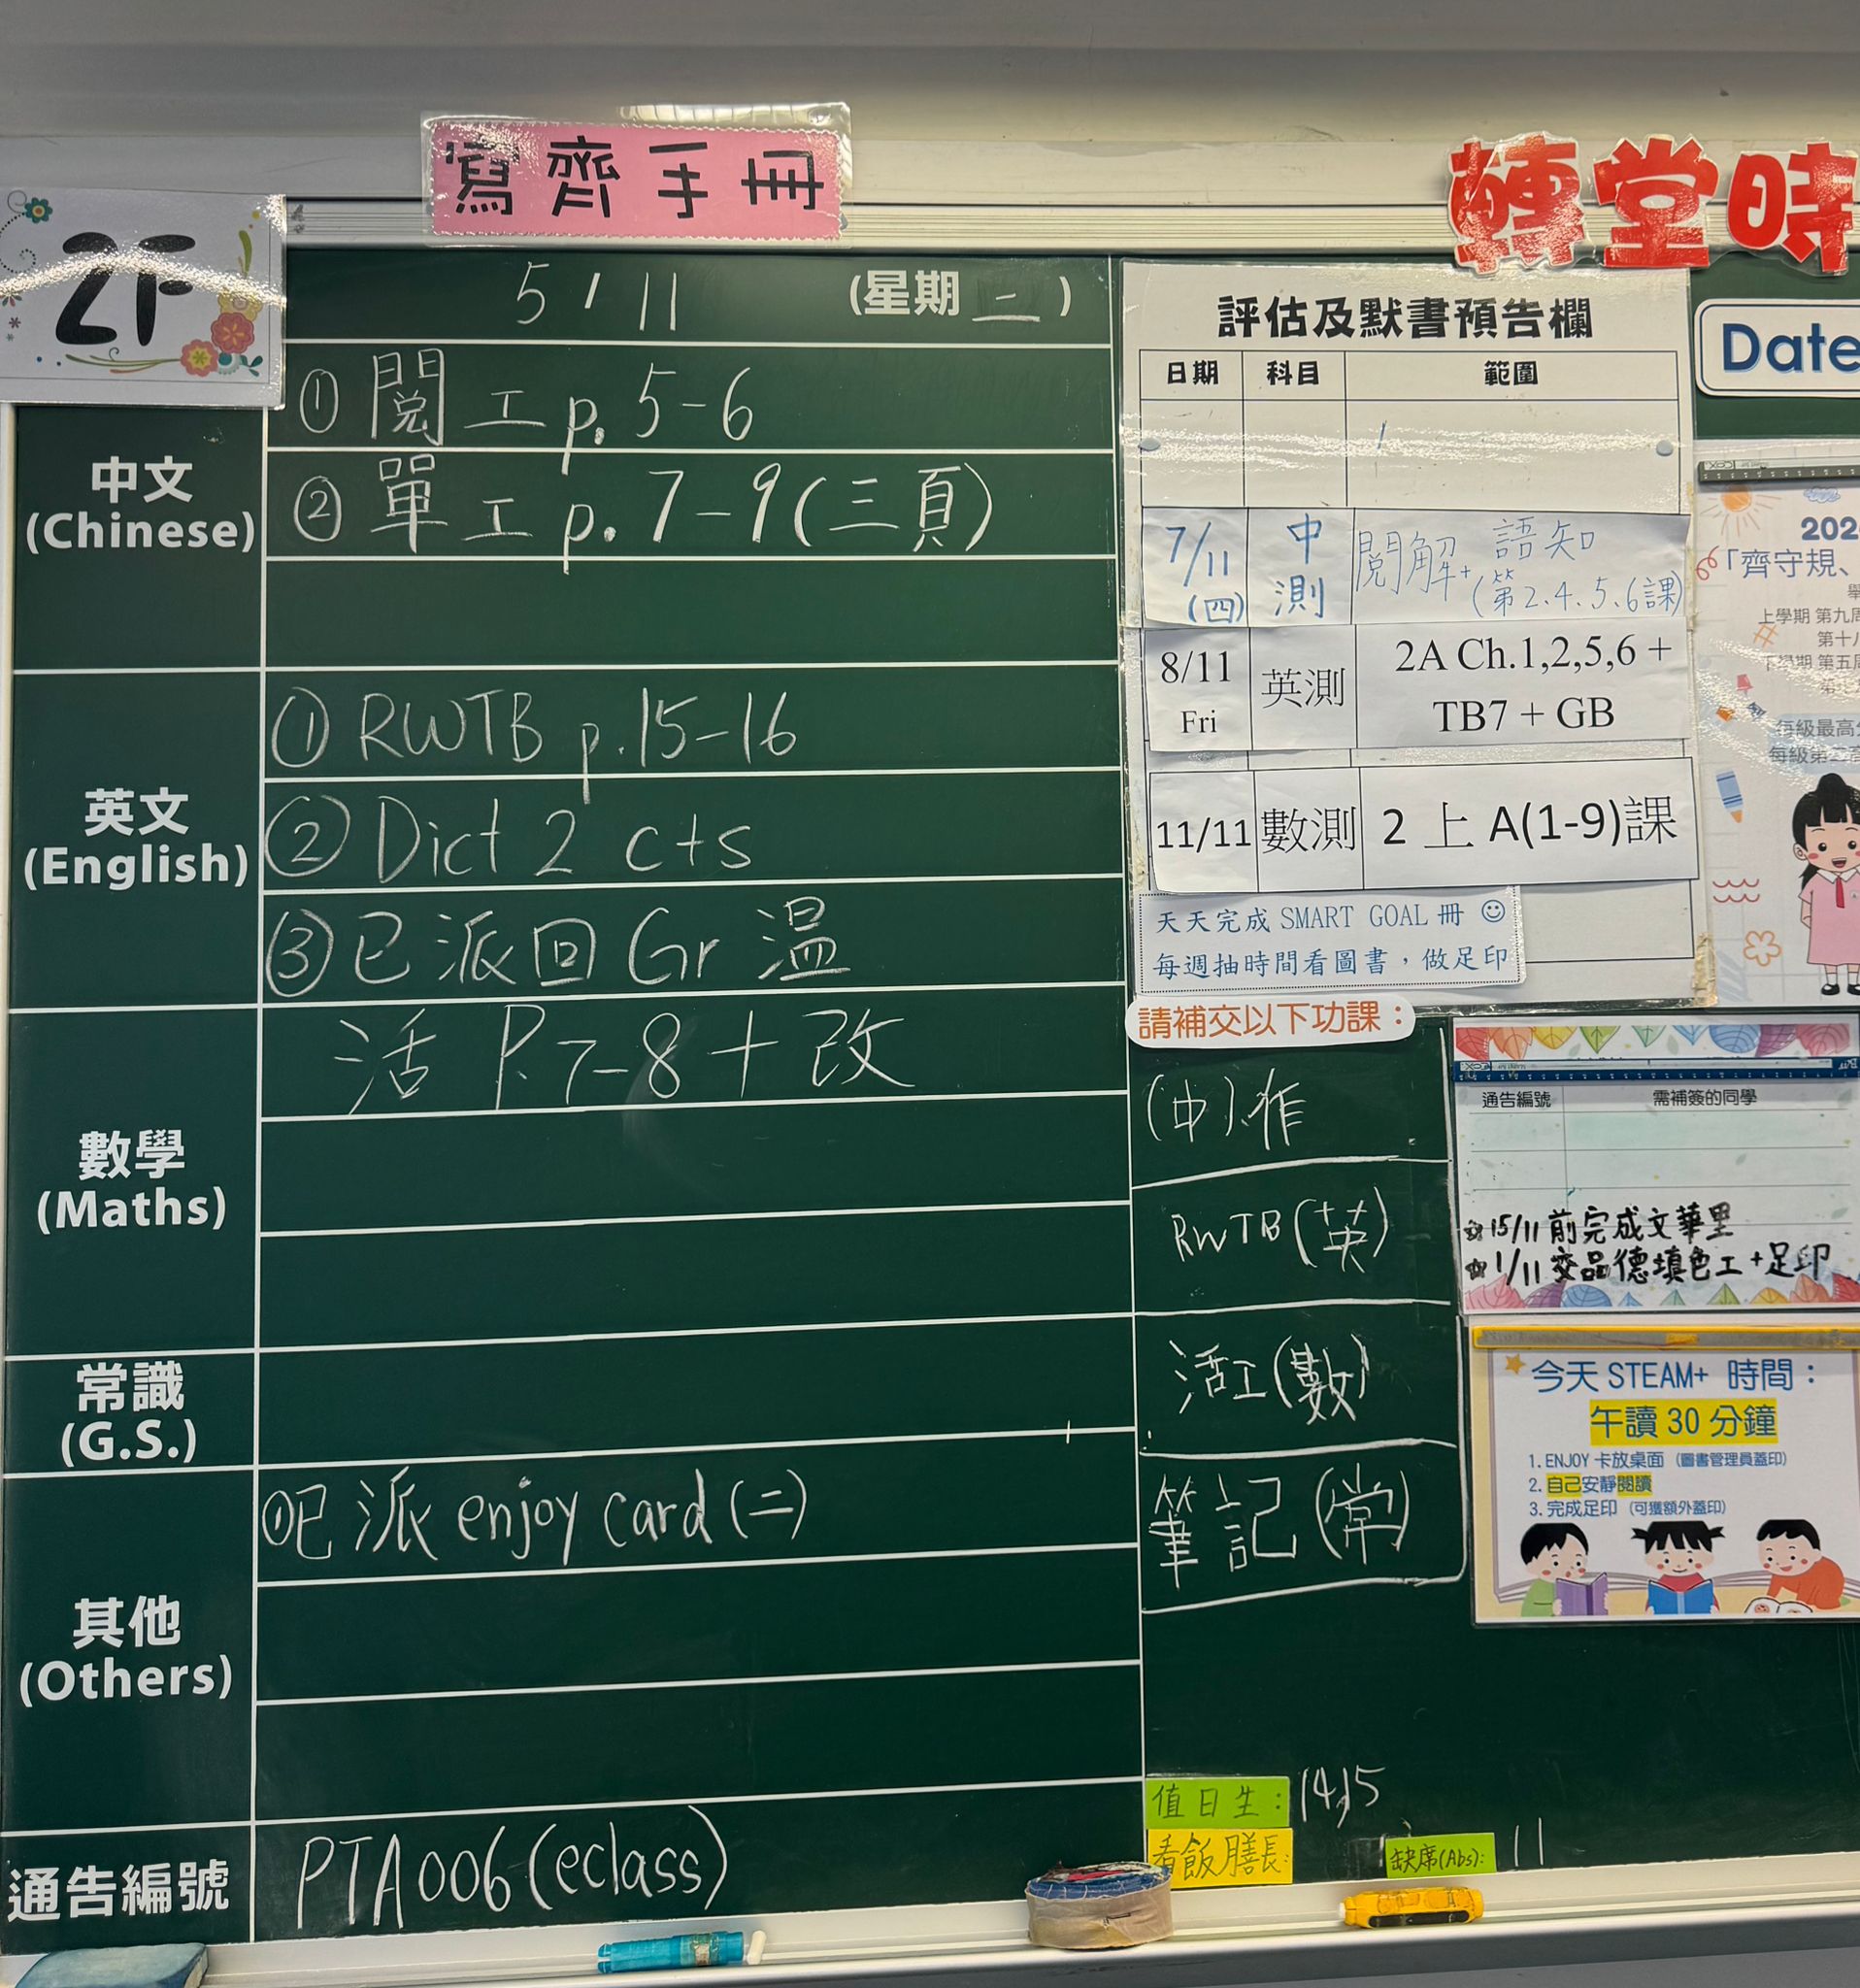 寫齊手冊
轉堂時
2F
5/11 (星期二)
中文
(Chinese)
① 閱工 p. 5-6
② 單工 p. 7-9(三頁)
英文
(English)
① RWTB p.15-16
② Dict 2 cts
③ 已派回 Gr 温
數學
(Maths)
活 P.7-8 + 改
常識
(G.S.)
其他
(Others)
① 已派 enjoy card (二)
通告編號
PTA006(eclass)
評估及默書預告欄
日期 科目 範圍
7/11 (四) 中測 閱解+語知 (第2、4、5、6課)
8/11 Fri 英測 2A Ch.1,2,5,6 + TB7 + GB
11/11 數測 2 上 A(1-9)課
天天完成 SMART GOAL 冊 ☺
每週抽時間看圖書，做足印
請補交以下功課：
(中).作
RWTB(英)
活工(數)
筆記(常)
值日生： 14,15
看飯膳長：
缺席(Abs): 11
Date
202
「齊守規、
上學期 第九周
第十八
下學期 第五周
每級最高分
通告編號 需補簽的同學
☆15/11 前完成文華里
☆1/11 交品德填色工+足印
今天 STEAM+ 時間：
午讀 30 分鐘
1. ENJOY 卡放桌面 (圖書管理員蓋印)
2. 自己安靜閱讀
3. 完成足印 (可獲額外蓋印)